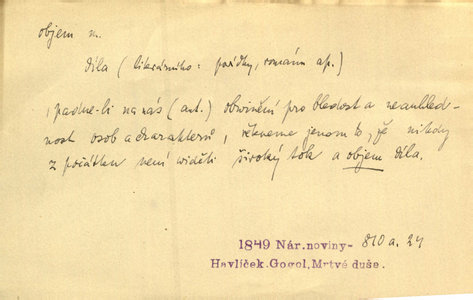 objem m.
díla (literárního: povídky, románu ap.)
, padne-li na nás (aut.) obvinění pro bledost a neouhled-
nost osob a charakterů, řekneme jenom to, že nikdy
z počátku není widěti široký tok a objem díla.
1849 Nár. noviny- 810 a. 24
Havlíček. Gogol, Mrtvé duše.